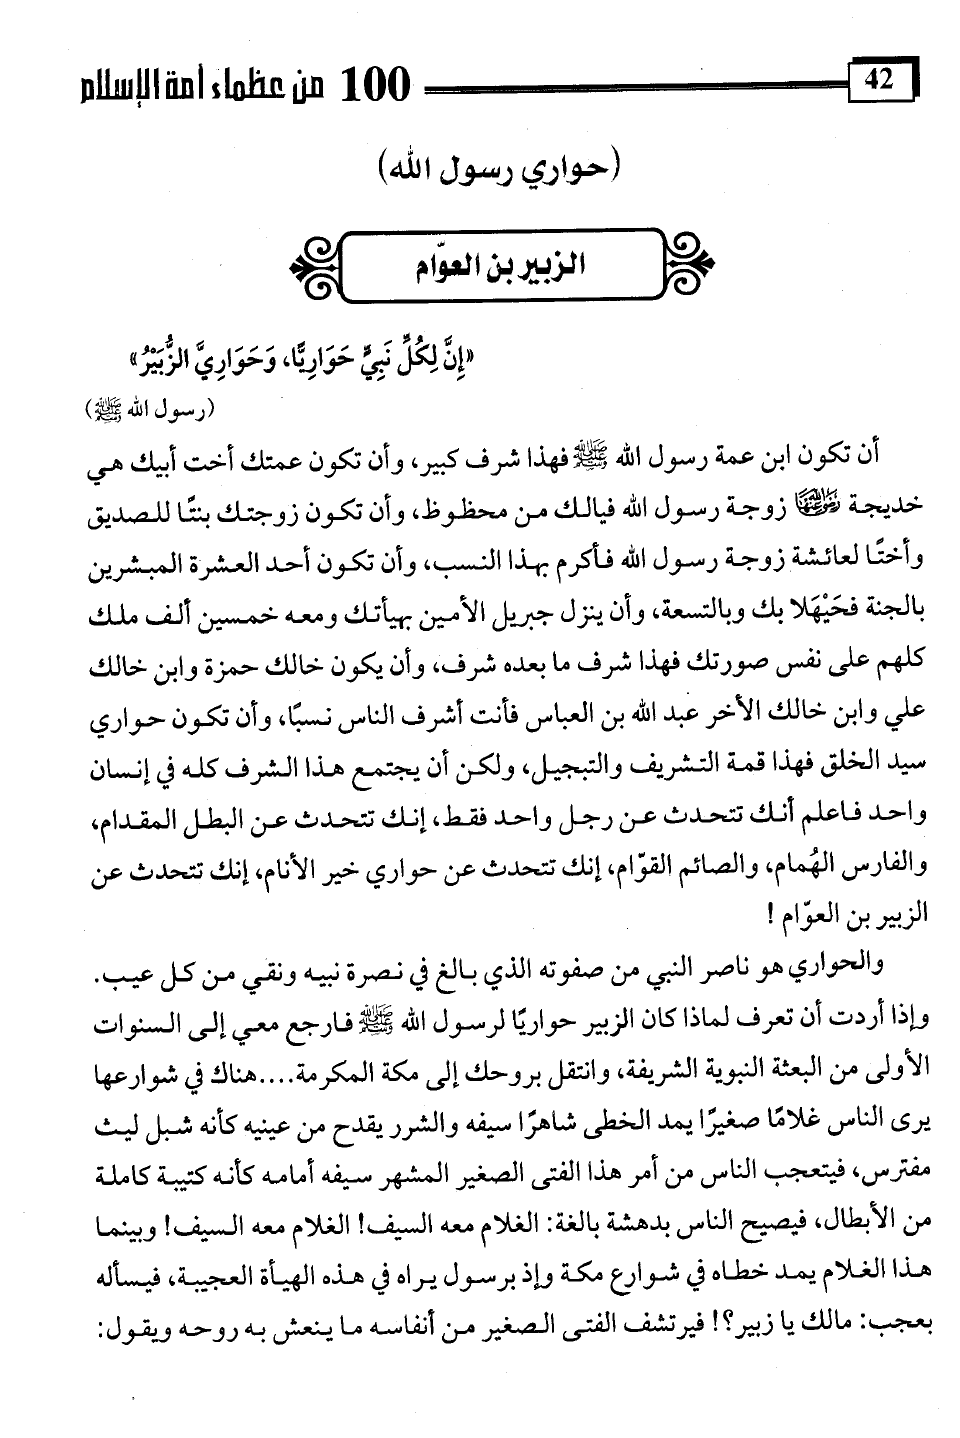 42
100 من عظماء أمة الإسلام
(حواري رسول الله)
الزبير بن العوّام
«إِنَّ لِكُلِّ نَبِيٍّ حَوَارِيًّا، وَحَوَارِيَّ الزُّبَيْرُ»
(رسول الله ﷺ)
أن تكون ابن عمة رسول الله ﷺ فهذا شرف كبير، وأن تكون عمتك أخت أبيك هي
خديجة رضي الله عنها زوجة رسول الله فيالك من محظوظ، وأن تكون زوجتك بنتًا للصديق
وأختًا لعائشة زوجة رسول الله فأكرم بهذا النسب، وأن تكون أحد العشرة المبشرين
بالجنة فحَيْهَلا بك وبالتسعة، وأن ينزل جبريل الأمين بهيأتك ومعه خمسين ألف ملك
كلهم على نفس صورتك فهذا شرف ما بعده شرف، وأن يكون خالك حمزة وابن خالك
علي وابن خالك الأخر عبد الله بن العباس فأنت أشرف الناس نسبًا، وأن تكون حواري
سيد الخلق فهذا قمة التشريف والتبجيل، ولكن أن يجتمع هذا الشرف كله في إنسان
واحد فاعلم أنك تتحدث عن رجل واحد فقط، إنك تتحدث عن البطل المقدام،
والفارس الهُمام، والصائم القوّام، إنك تتحدث عن حواري خير الأنام، إنك تتحدث عن
الزبير بن العوّام !
والحواري هو ناصر النبي من صفوته الذي بالغ في نصرة نبيه ونقي من كل عيب.
وإذا أردت أن تعرف لماذا كان الزبير حواريًا لرسول الله ﷺ فارجع معي إلى السنوات
الأولى من البعثة النبوية الشريفة، وانتقل بروحك إلى مكة المكرمة....هناك في شوارعها
يرى الناس غلامًا صغيرًا يمد الخطى شاهرًا سيفه والشرر يقدح من عينيه كأنه شبل ليث
مفترس، فيتعجب الناس من أمر هذا الفتى الصغير المشهر سيفه أمامه كأنه كتيبة كاملة
من الأبطال، فيصيح الناس بدهشة بالغة: الغلام معه السيف! الغلام معه السيف! وبينما
هذا الغلام يمد خطاه في شوارع مكة وإذ برسول يراه في هذه الهيأة العجيبة، فيسأله
بعجب: مالك يا زبير؟! فيرتشف الفتى الصغير من أنفاسه ما ينعش به روحه ويقول: